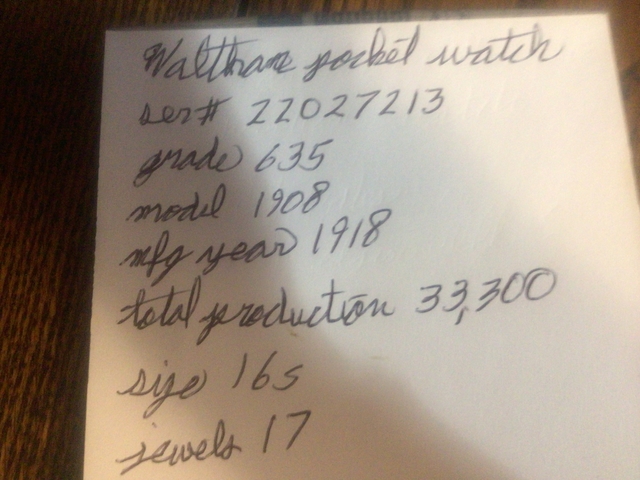 Waltham pocket watch
ser# 22027213
grade 635
model 1908
mfg year 1918
total production 33,300
size 16s
jewels 17